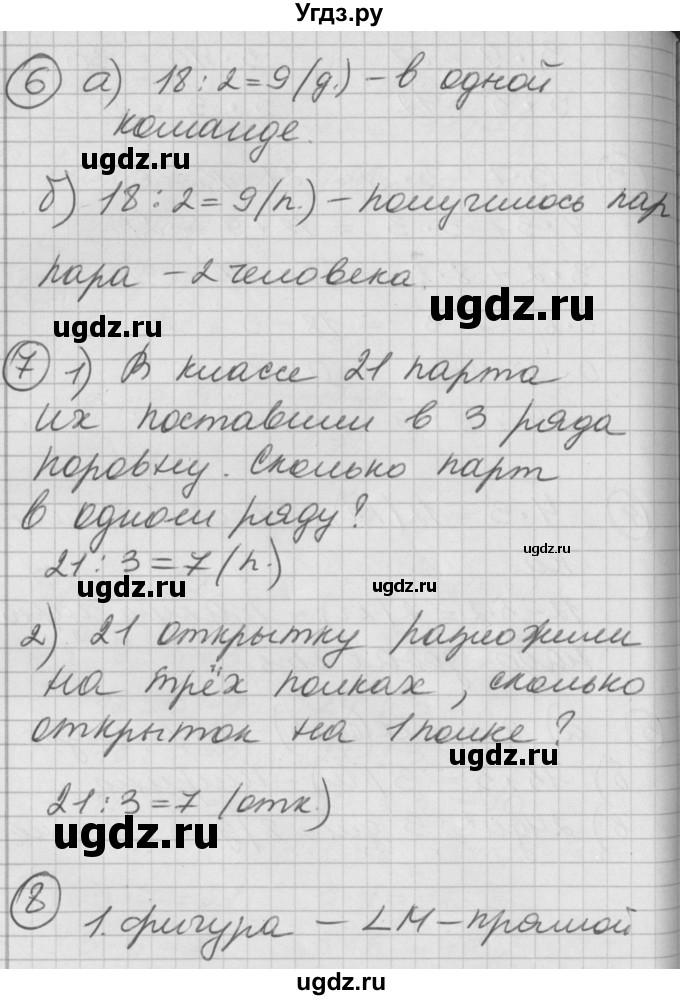 Угдз.ру
6 а) 18 : 2 = 9 (д.) – в одной
команде.
ugdz.ru
б) 18 : 2 = 9 (п.) – получилось пар
пара – 2 человека.
ugdz.ru
ugdz.ru
7 1) В классе 21 парта
их поставили в 3 ряда
поровну. Сколько парт
в одном ряду?
ugdz.ru
21 : 3 = 7 (п.)
ugdz.ru
ugdz.ru
2) 21 открытку разложили
на трёх полках, сколько
открыток на 1 полке?
ugdz.ru
21 : 3 = 7 (отк.)
ugdz.ru
8 1. фигура – ∠М – прямой
ugdz.ru